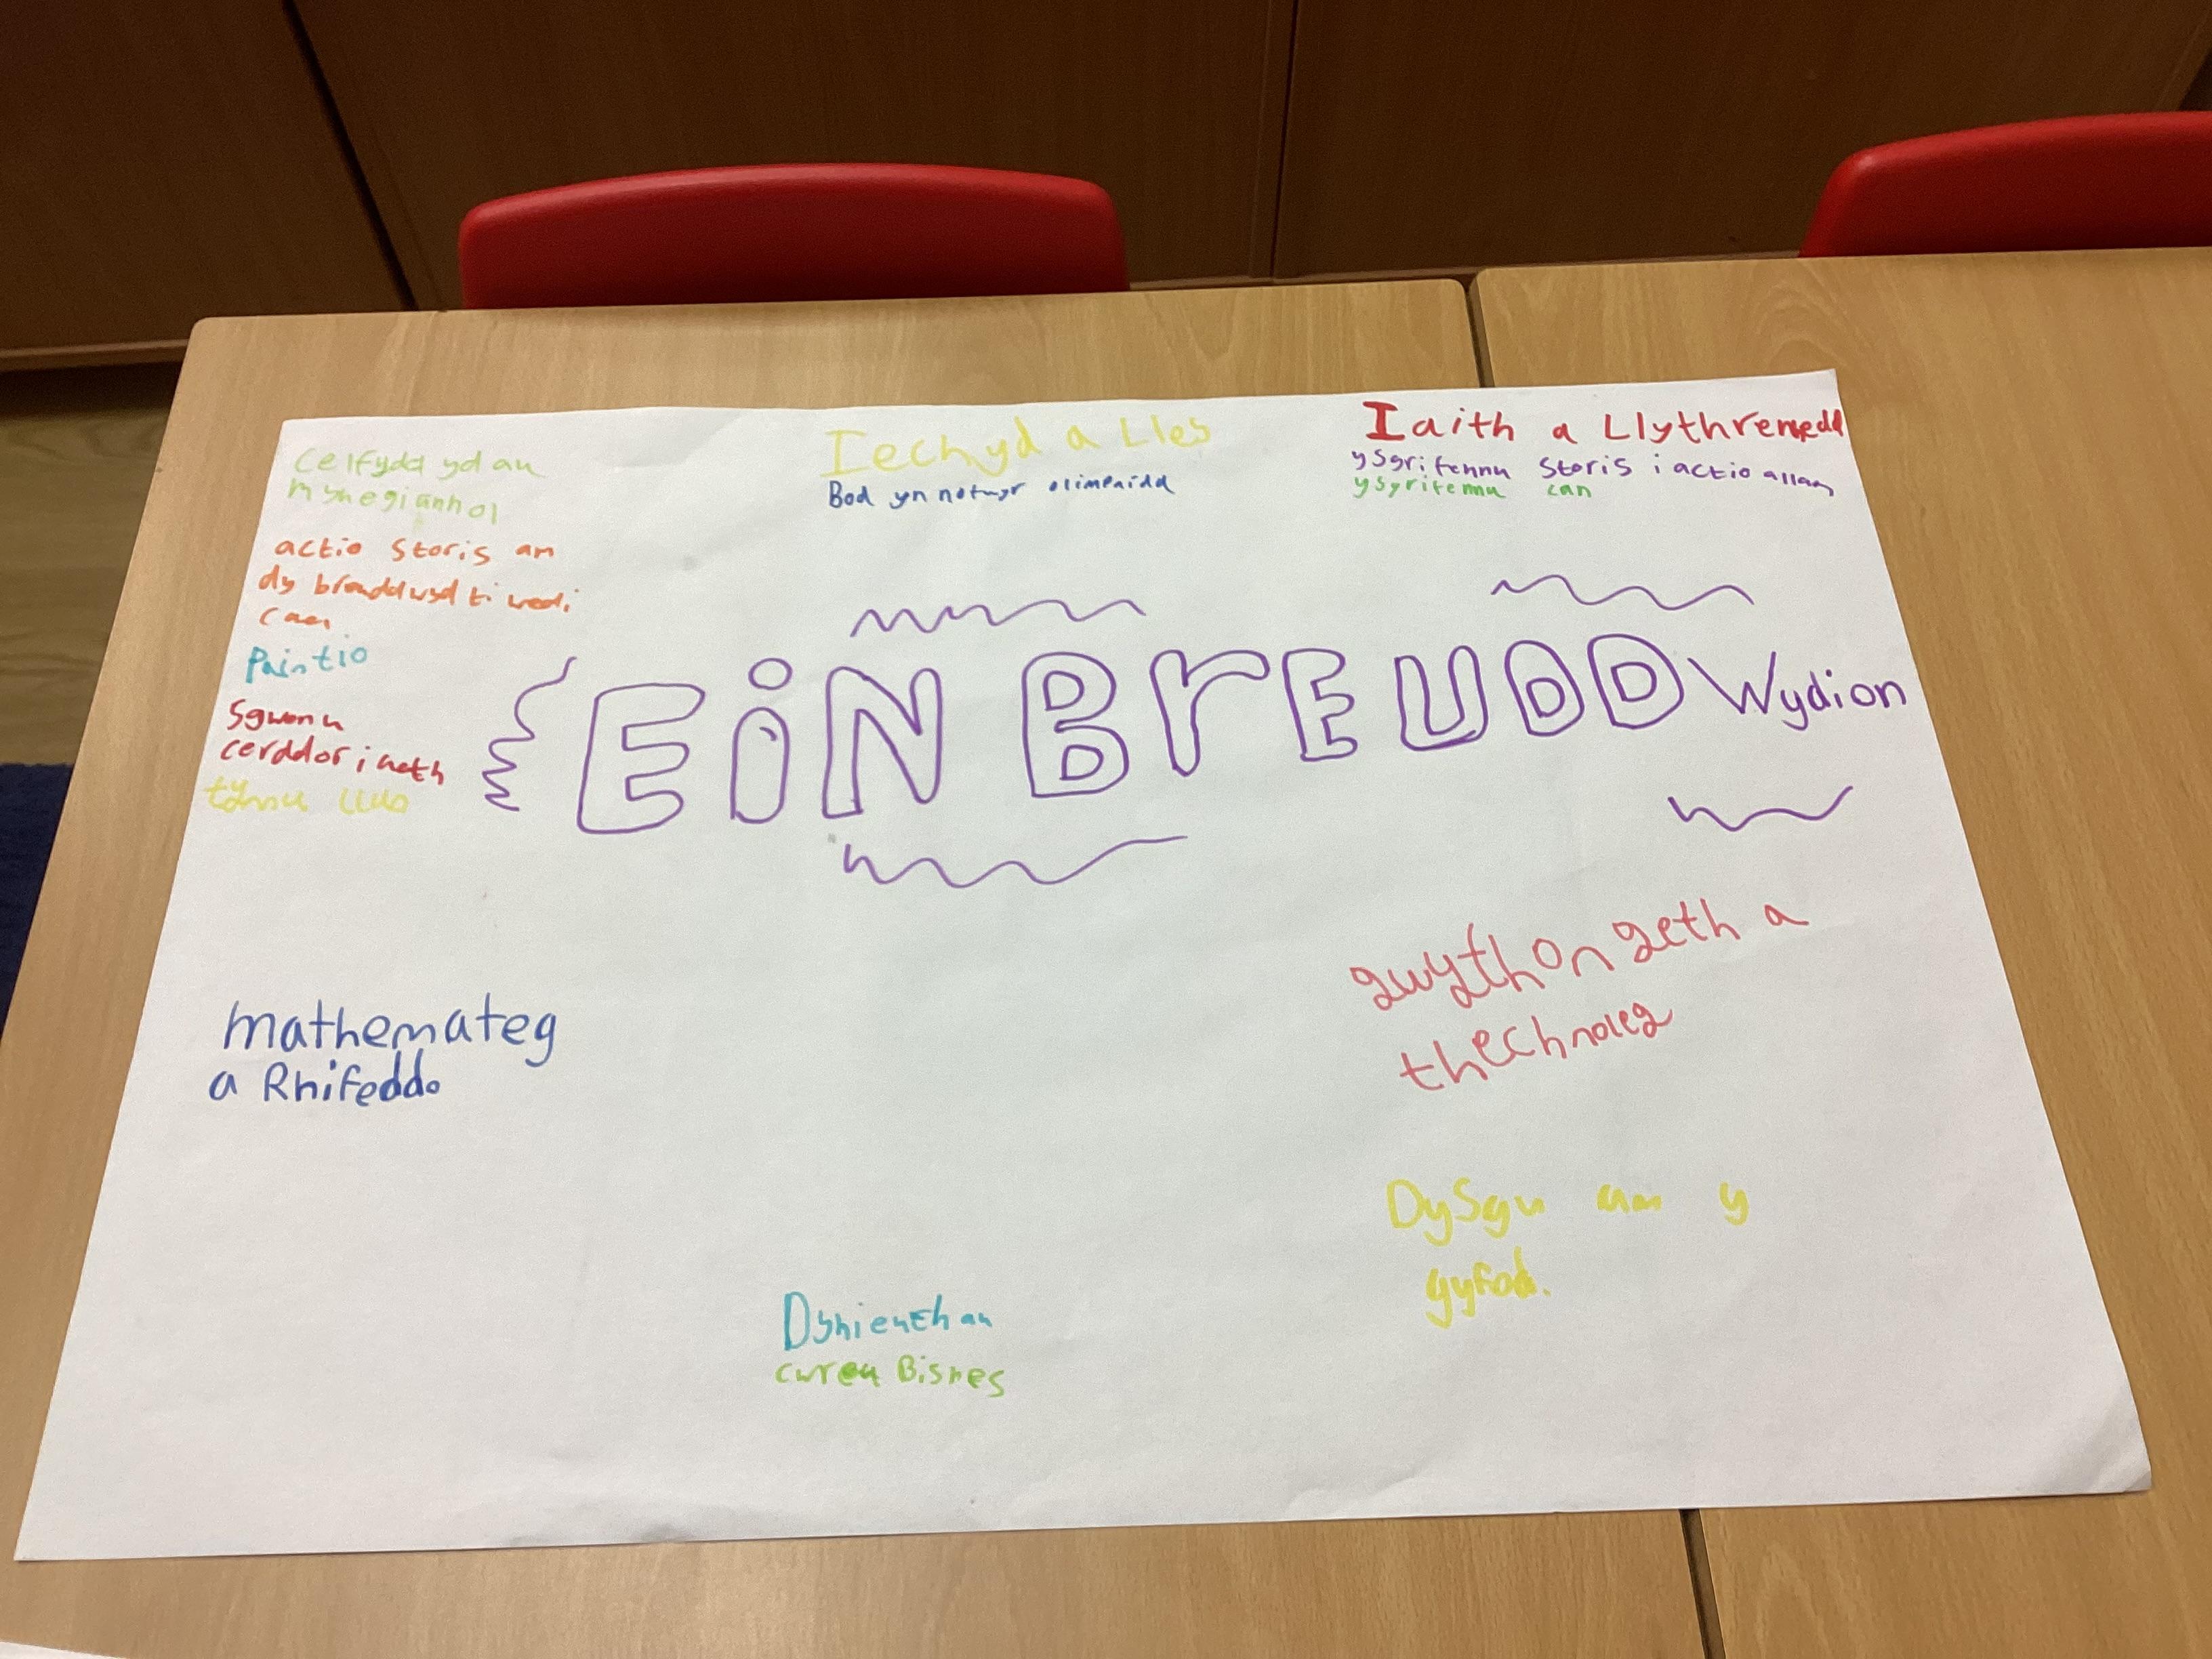 Celfydd yd au
mynegianhol
actio storis am
dy breuddwyd ti wedi
cael
Paintio
Sgwenu
cerddoriaeth
tynnu llun
Iechyd a Lles
Bod yn nofwyr olimpaidd
Iaith a Llythrenedd
ysgrifennu storis i actio allan
ysgrifennu can
EiN BrEUDDWydion
mathemateg
a Rhifedd.
gwython geth a
thechnoleg
Dysgu am y
gyfod.
Dyniaethau
creu Bisnes